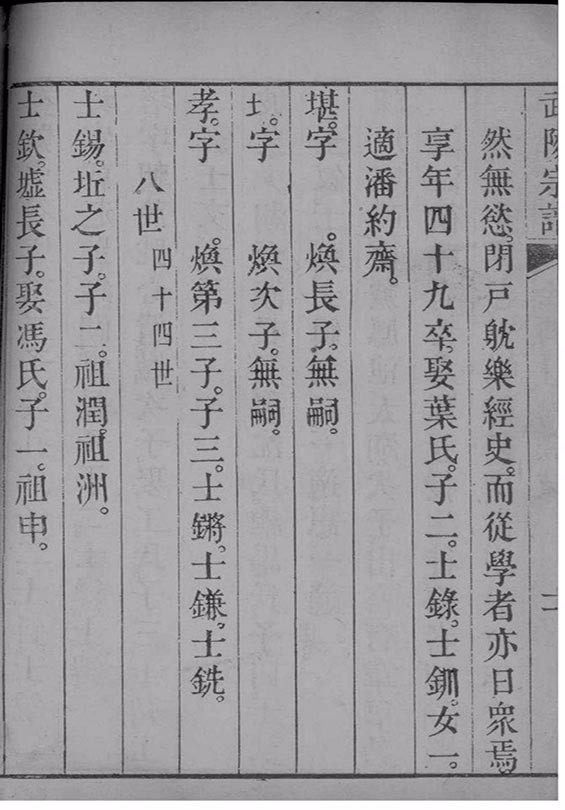 宗
然無慾。閉戶躭樂經史。而從學者亦日眾焉。
享年四十九卒。娶葉氏。子二。士錄。士釧。女一。
適潘約齋。
堪。字　。煥長子。無嗣。
字　煥次子。無嗣。
孝。字　。煥第三子。子三。士鏘。士鎌。士銑。
八世　四十四世
士錫。坵之子。子二。祖潤。祖洲。
士欽。墟長子。娶馮氏。子一。祖申。